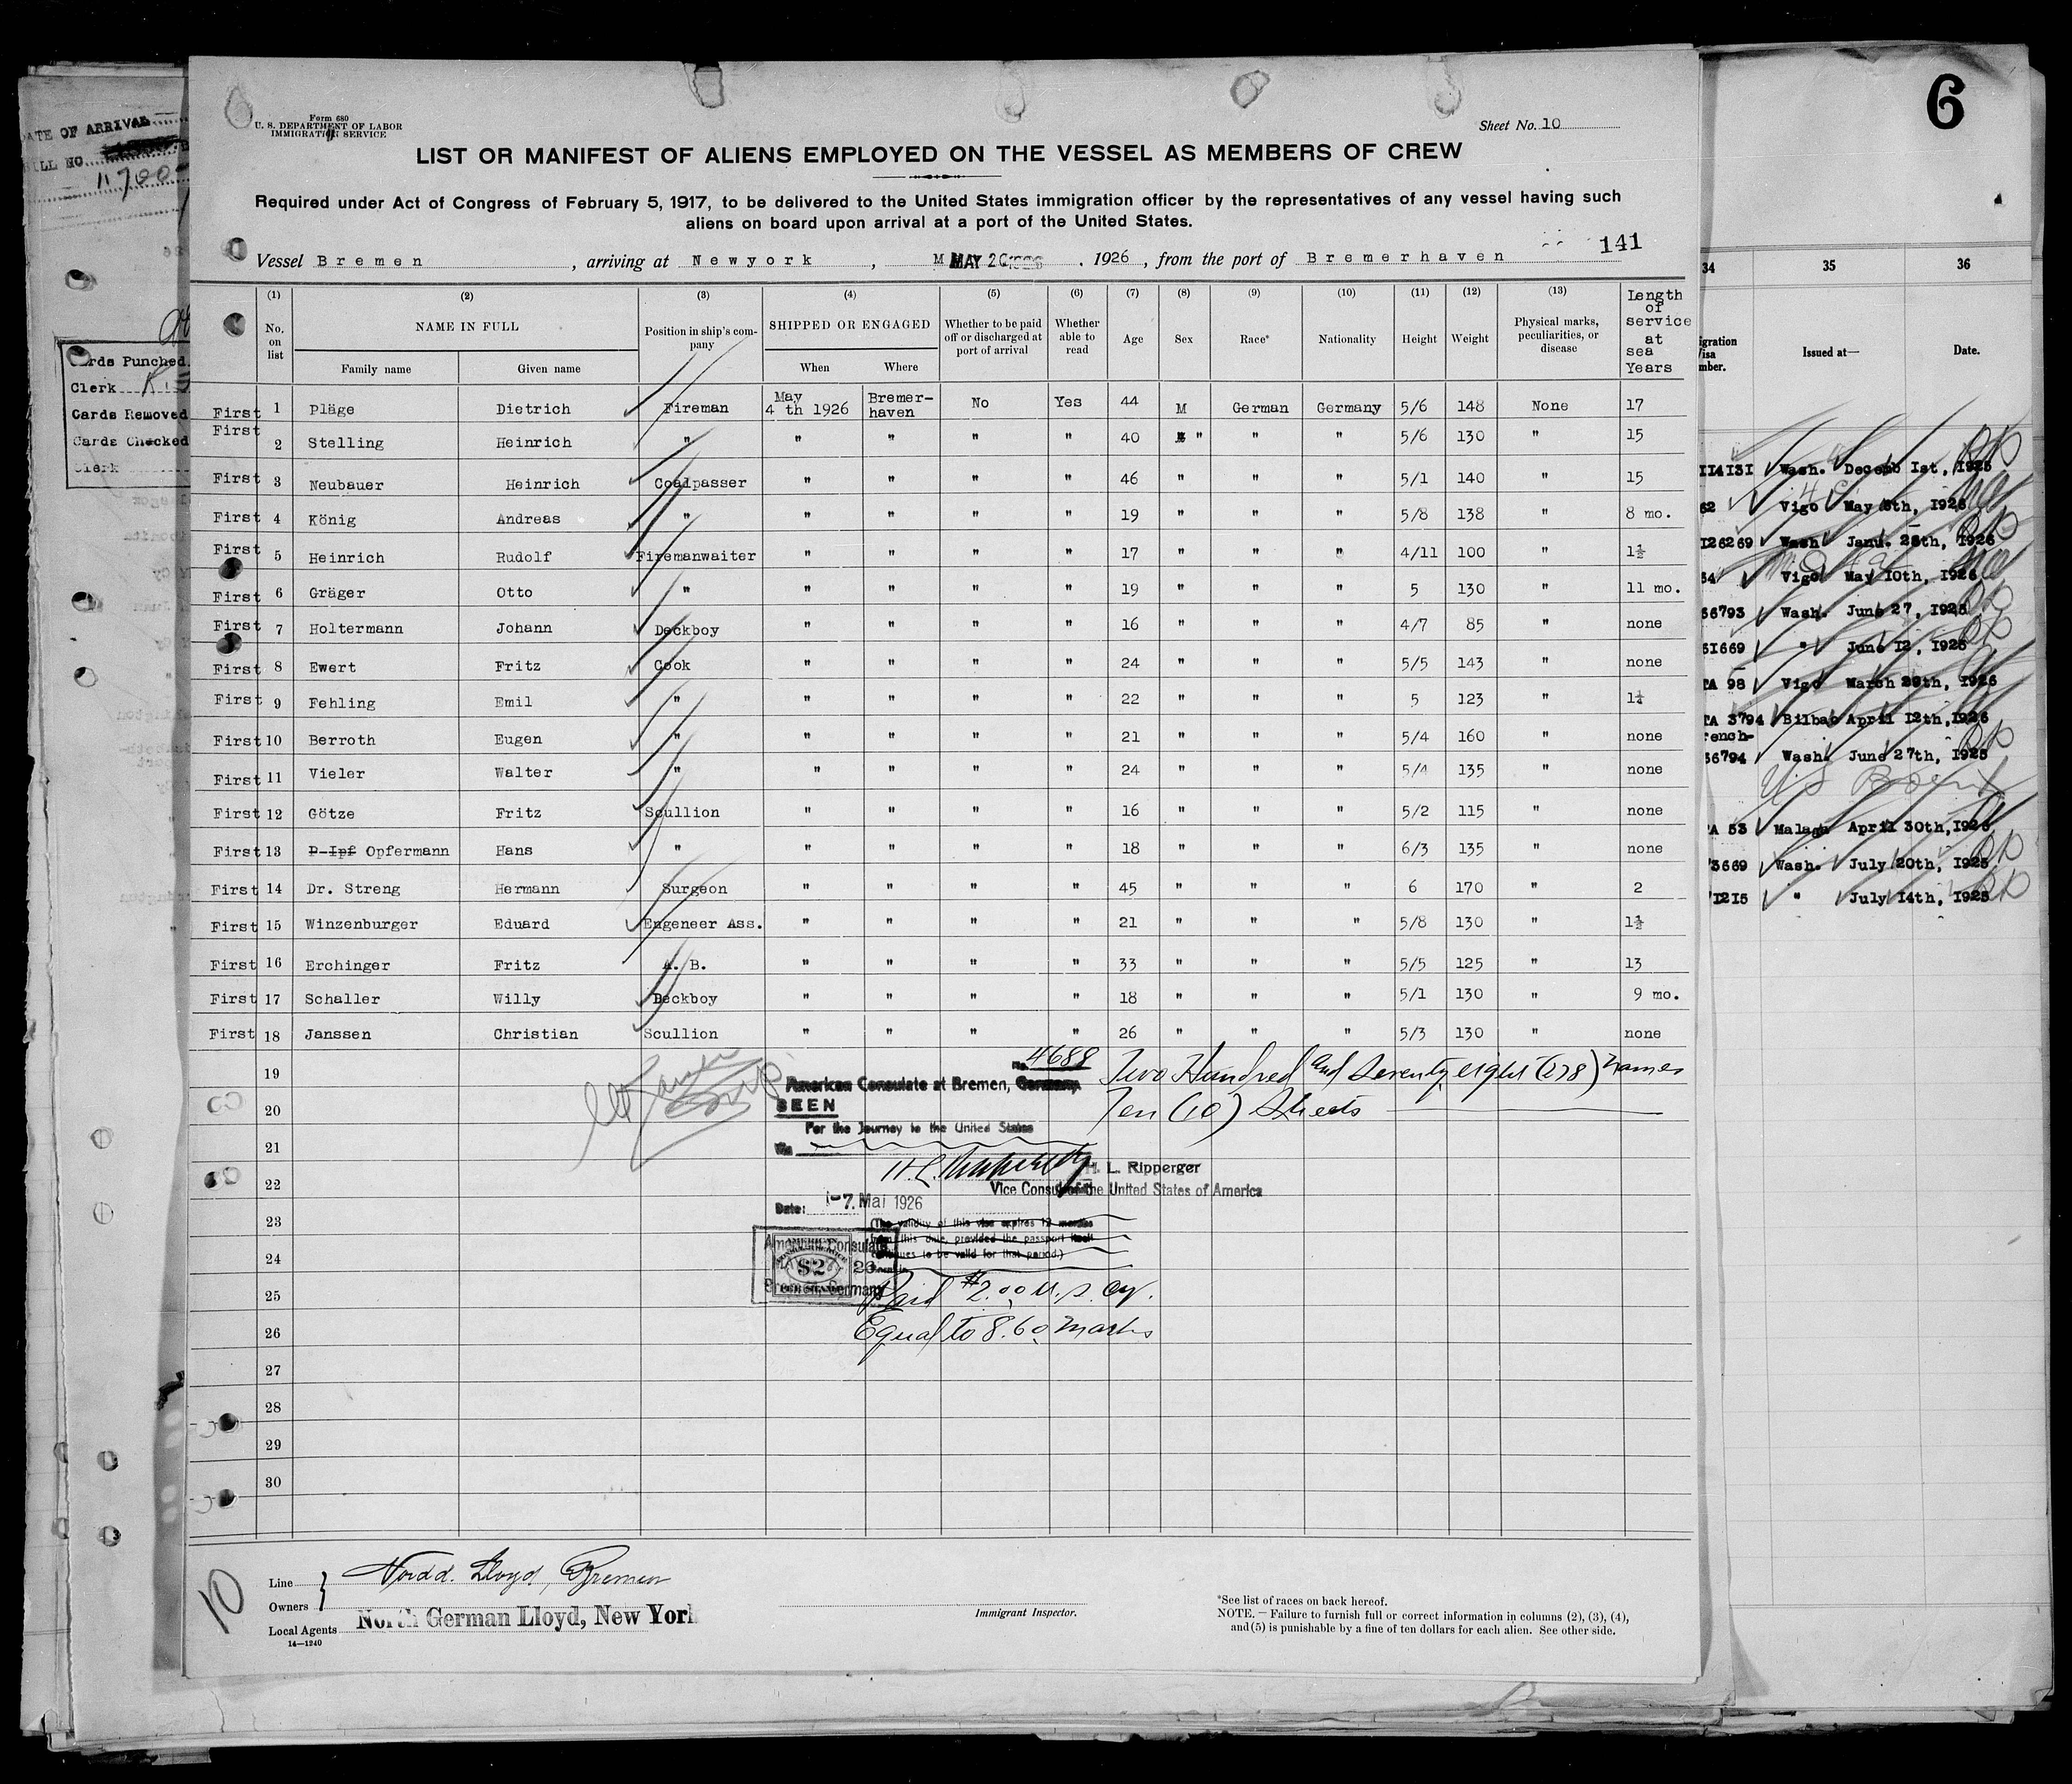 6
DATE OF ARRIVAL
BILL NO.
11700
Cards Punched
Clerk
Cards Removed
Cards Checked
Clerk
Form 680
U. S. DEPARTMENT OF LABOR
IMMIGRATION SERVICE
Sheet No. 10
LIST OR MANIFEST OF ALIENS EMPLOYED ON THE VESSEL AS MEMBERS OF CREW
Required under Act of Congress of February 5, 1917, to be delivered to the United States immigration officer by the representatives of any vessel having such
aliens on board upon arrival at a port of the United States.
141
Vessel Bremen, arriving at Newyork, M MAY 20 1926, 1926, from the port of Bremerhaven
(1) (2) (3) (4) (5) (6) (7) (8) (9) (10) (11) (12) (13)
No. on list NAME IN FULL Family name Given name Position in ship's company SHIPPED OR ENGAGED When Where Whether to be paid off or discharged at port of arrival Whether able to read Age Sex Race* Nationality Height Weight Physical marks, peculiarities, or disease Length of service at sea Years
First 1 Pläge Dietrich Fireman May 4 th 1926 Bremer-haven No Yes 44 M German Germany 5/6 148 None 17
First 2 Stelling Heinrich " " " " " 40 " " " 5/6 130 " 15
First 3 Neubauer Heinrich Coalpasser " " " " 46 " " " 5/1 140 " 15
First 4 König Andreas " " " " " 19 " " " 5/8 138 " 8 mo.
First 5 Heinrich Rudolf Firemanwaiter " " " " 17 " " " 4/11 100 " 1½
First 6 Gräger Otto " " " " " 19 " " " 5 130 " 11 mo.
First 7 Holtermann Johann Deckboy " " " " 16 " " " 4/7 85 " none
First 8 Ewert Fritz Cook " " " " 24 " " " 5/5 143 " none
First 9 Fehling Emil " " " " " 22 " " " 5 123 " 1¼
First 10 Berroth Eugen " " " " " 21 " " " 5/4 160 " none
First 11 Vieler Walter " " " " " 24 " " " 5/4 135 " none
First 12 Götze Fritz Scullion " " " " 16 " " " 5/2 115 " none
First 13 P-Ipf Opfermann Hans " " " " " 18 " " " 6/3 135 " none
First 14 Dr. Streng Hermann Surgeon " " " " 45 " " " 6 170 " 2
First 15 Winzenburger Eduard Engeneer Ass. " " " " 21 " " " 5/8 130 " 1½
First 16 Erchinger Fritz A. B. " " " " 33 " " " 5/5 125 " 13
First 17 Schaller Willy Deckboy " " " " 18 " " " 5/1 130 " 9 mo.
First 18 Janssen Christian Scullion " " " " 26 " " " 5/3 130 " none
19
20
21
22
23
24
25
26
27
28
29
30
No. 4688
American Consulate at Bremen, Germany.
SEEN
For the Journey to the United States
Via
Two Hundred and Seventy eight (278) names
Ten (10) Sheets
H. L. Ripperger
Vice Consul of the United States of America
Date: -7. Mai 1926
(The validity of this visa expires 12 months
from this date, provided the passport itself
continues to be valid for that period.)
American Consulate
$2
Bremen, Germany
Paid $2.00 U. S. Cy.
Equal to 8.60 Marks
10
Line
Owners
Nordd. Lloyd, Bremen
Local Agents North German Lloyd, New York
14—1240
Immigrant Inspector.
*See list of races on back hereof.
NOTE.—Failure to furnish full or correct information in columns (2), (3), (4),
and (5) is punishable by a fine of ten dollars for each alien. See other side.
34 35 36
Issued at— Date.
114131 Wash. Decemb 1st, 1925
62 Vigo May 8th, 1926
126269 Wash. Janu. 28th, 1926
64 Vigo May 10th, 1926
66793 Wash. June 27, 1925
61669 " June 12, 1925
TA 98 Vigo March 29th, 1926
TA 3794 Bilbao April 12th, 1926
rench-
66794 Wash. June 27th, 1925
US Born
A 53 Malaga April 30th, 1926
73669 Wash. July 20th, 1925
71215 " July 14th, 1925